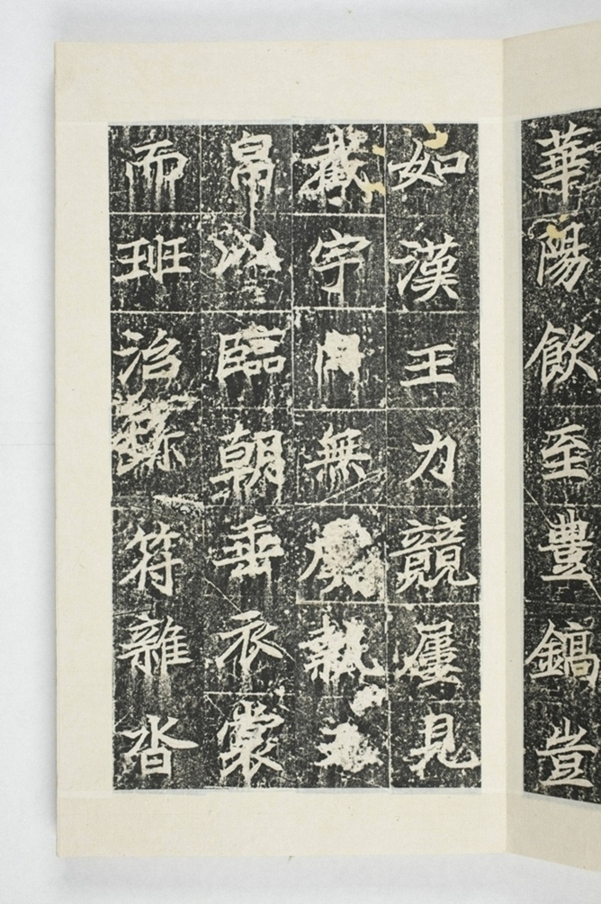 華陽飲至豐鎬豈
如漢王力競屢見
截宇內無虞執
帛以臨朝垂衣裳
而班治珎符雜沓